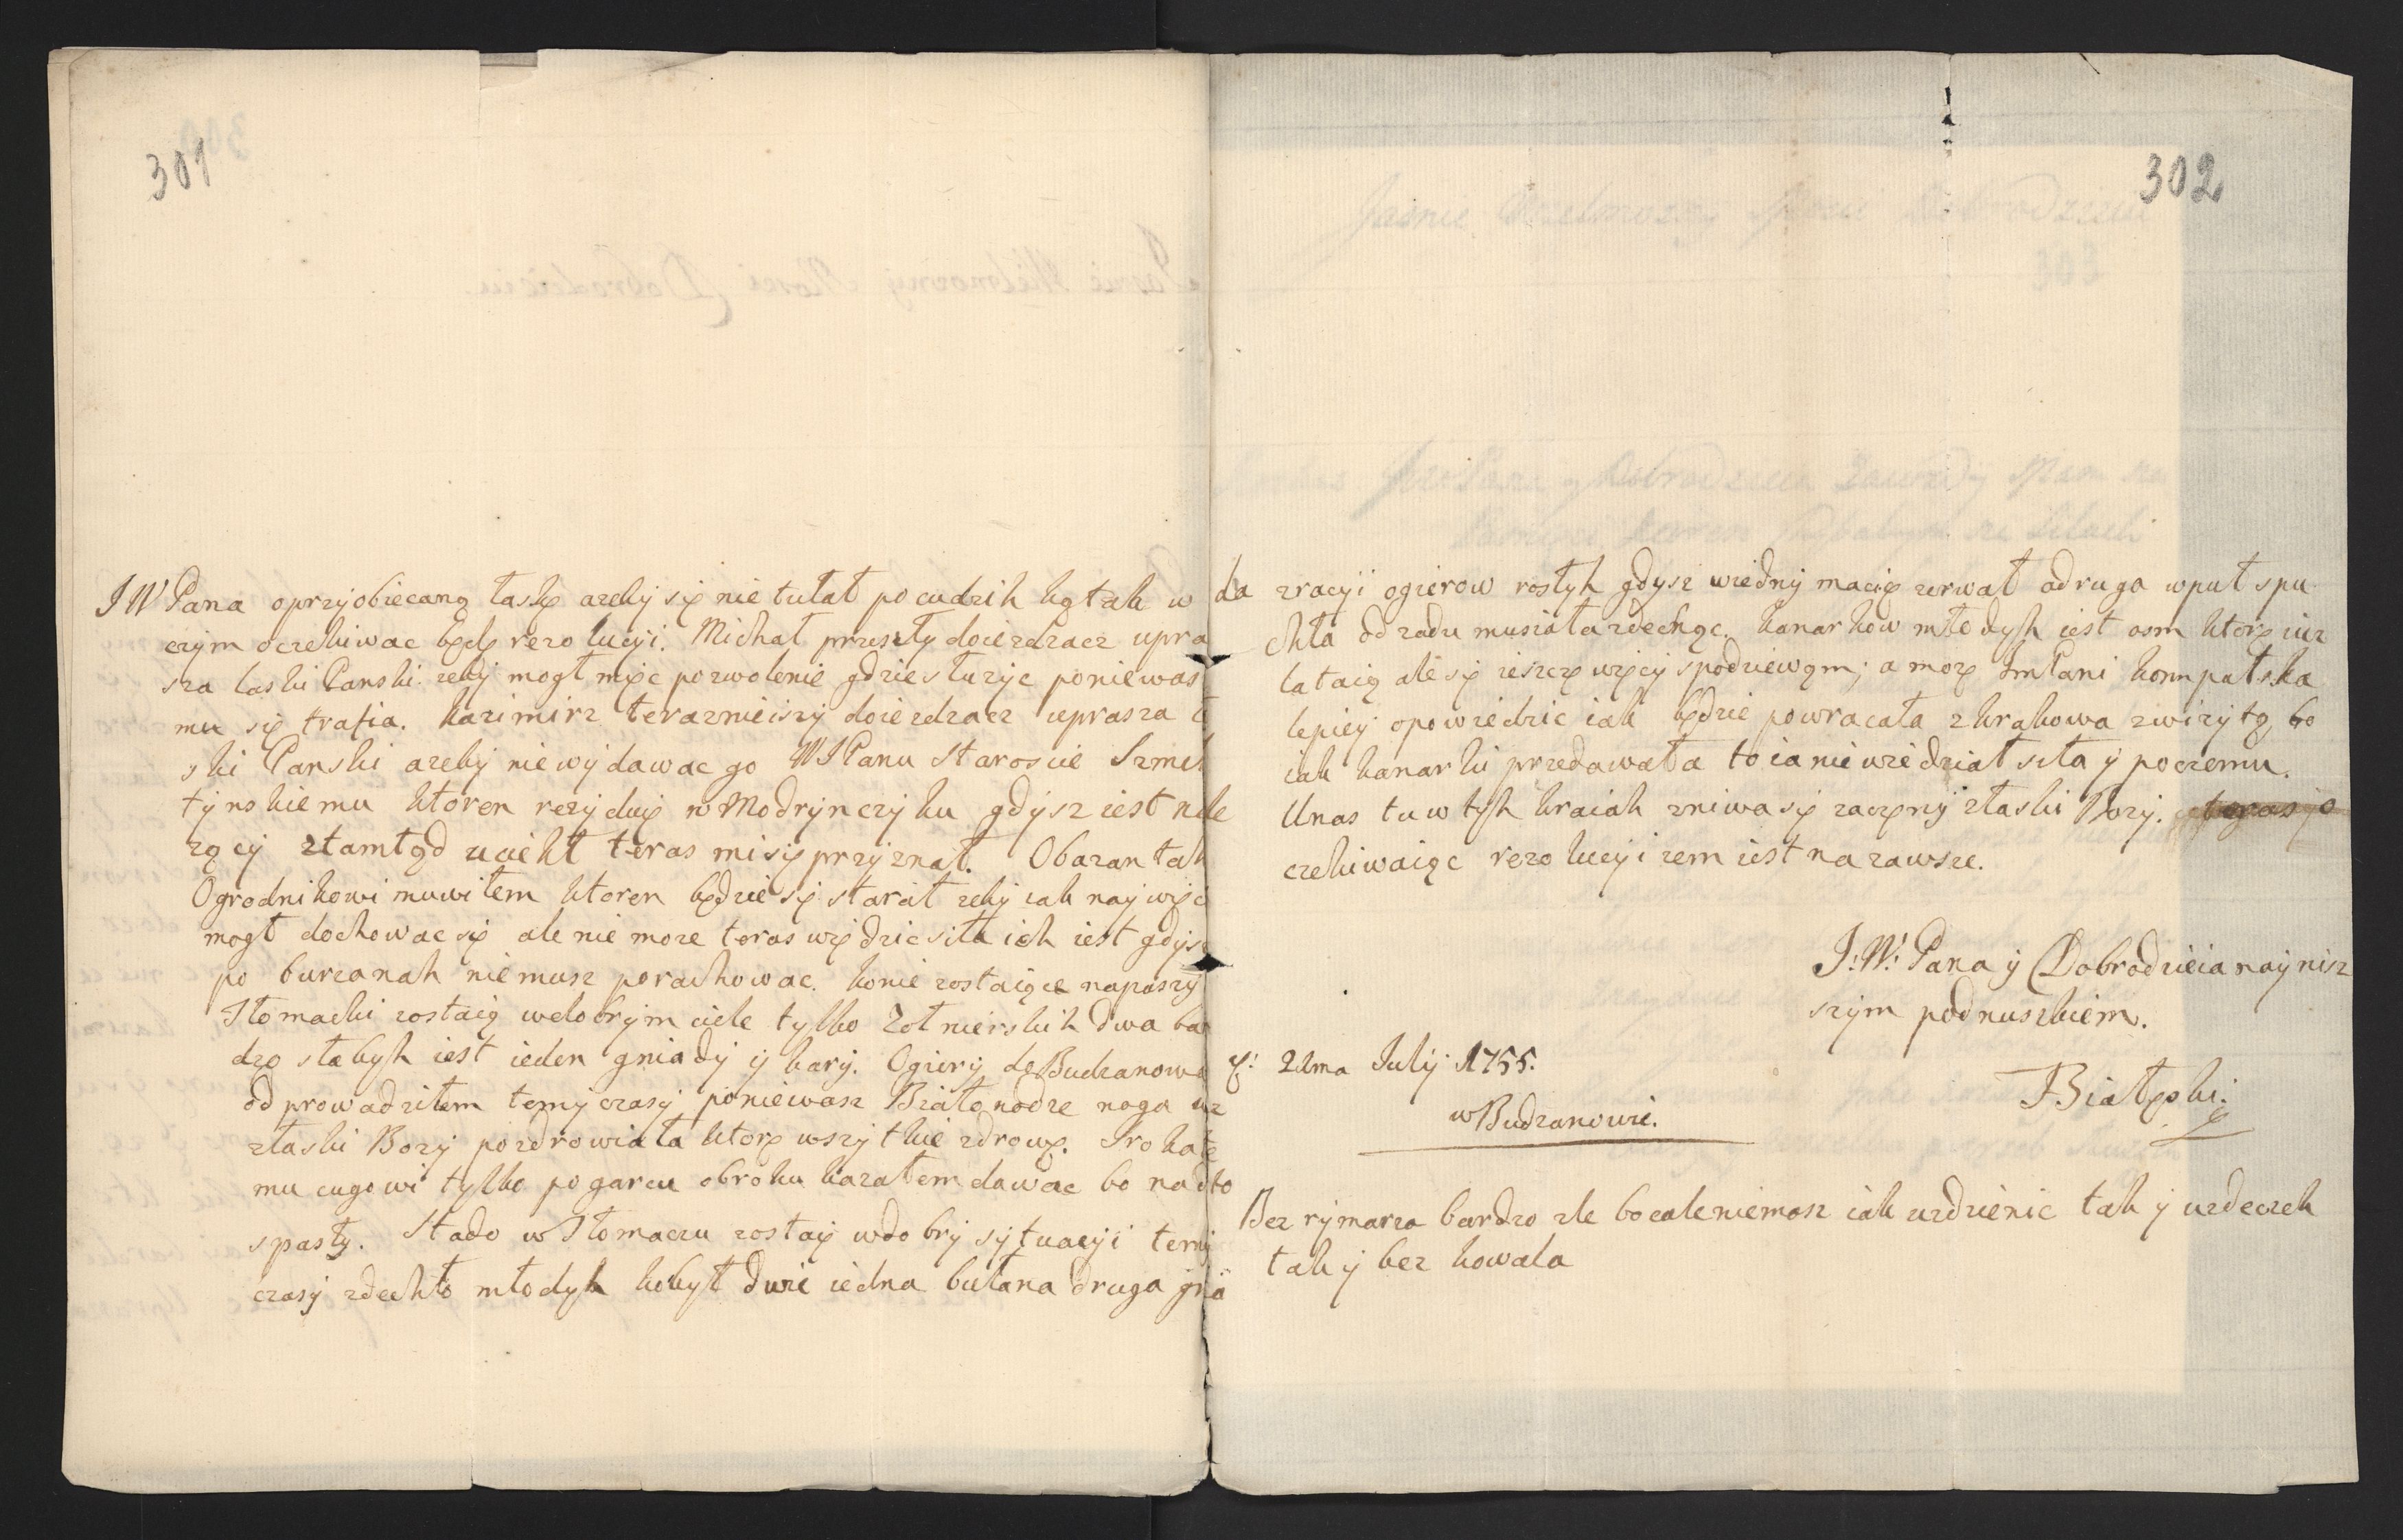 301
JW Pana oprzyobiecaną łaskę azeby się nie tułał po cudzih kątah w
czym oczekiwac będę rezolucyi. Michał przeszły doiezdzacz upra
sza laski Panski zeby mogł mięc pozwolenie gdzie słuzyc poniewas
mu się trafia. Kazimirz teraznieiszy doiezdzacz uprasza ł
ski Panski azeby niewydawac go WJPanu Staroscie
tynskiemu ktoren rezyduię w Modrynczyku gdysz iest nale
zący ztamtąd uciekł teras mi się przyznał. Obazantah
Ogrodnikowi muwiłem ktoren będzie się starał zeby iak naywięc
mogł dochowac się ale nie moze teras więdzic siła ich iest gdysz
po burzanah niemusz porachowac. konie zostaiące napaszy
Tłomacki zostaią wdobrym ciele tylko Zołnierskih dwa bar
dzo słabyh iest ieden gniady y kary. Ogiery do Budzanowa
odprowadziłem temy czasy poniewasz Białonodze noga uz
złaski Bozy pozdrowiała ktorę wszytkie zdrowę. Srokate
mu cugowi tylko po garcu obroku kazałem dawac bo nadto
spasły. Stado w Tłomaczu zostaię wdobry sytuacyi temy
czasy zdechło młodyh kobył dwie iedna bułana druga gnia
302
da zracyi ogierow rosłyh gdysz wiedny macię zerwał adruga wput spu
chła od zadu musiała zdechnąc. kanarkow młodyh iest osm ktorę iuz
lataią ale się ieszczę więcy spodziewam; a morę ImPani konpatska
lepiey opowiedzic iak będzie powracała z krakowa zwizytą, bo
iak kanarki przedawała to ia nie wiedział siła y poczemu.
Unas tu w tyh kraiah zniwa się zaczęny złaski Bozy.
czekiwaiąc rezolucyi zem iest na zawsze.
J: W: Pana y Dobrodzieia naynisz
szym podnuszkiem.
Białęski.
d: 21ma July 1755.
w Budzanowie.
Bez rymarza bardzo zle bo cale niemasz iak uzdzienic tak y uzdeczek
tak y bez kowala